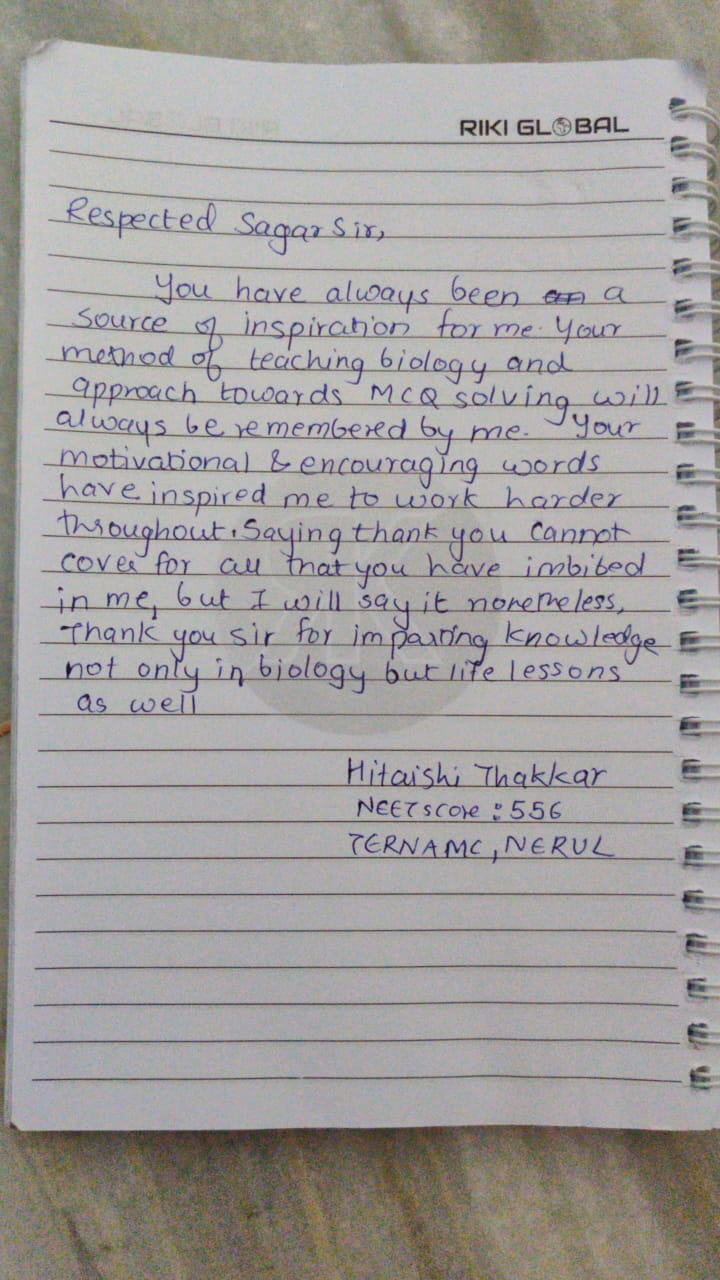 RIKI GLOBAL
Respected Sagar Sir,
You have always been a
source of inspiration for me. Your
method of teaching biology and
approach towards MCQ solving will
always be remembered by me. Your
motivational & encouraging words
have inspired me to work harder
throughout. Saying thank you cannot
cover for all that you have imbibed
in me, but I will say it nonetheless,
Thank you sir for imparting knowledge
not only in biology but life lessons
as well
Hitaishi Thakkar
NEET score : 556
TERNAMC, NERUL